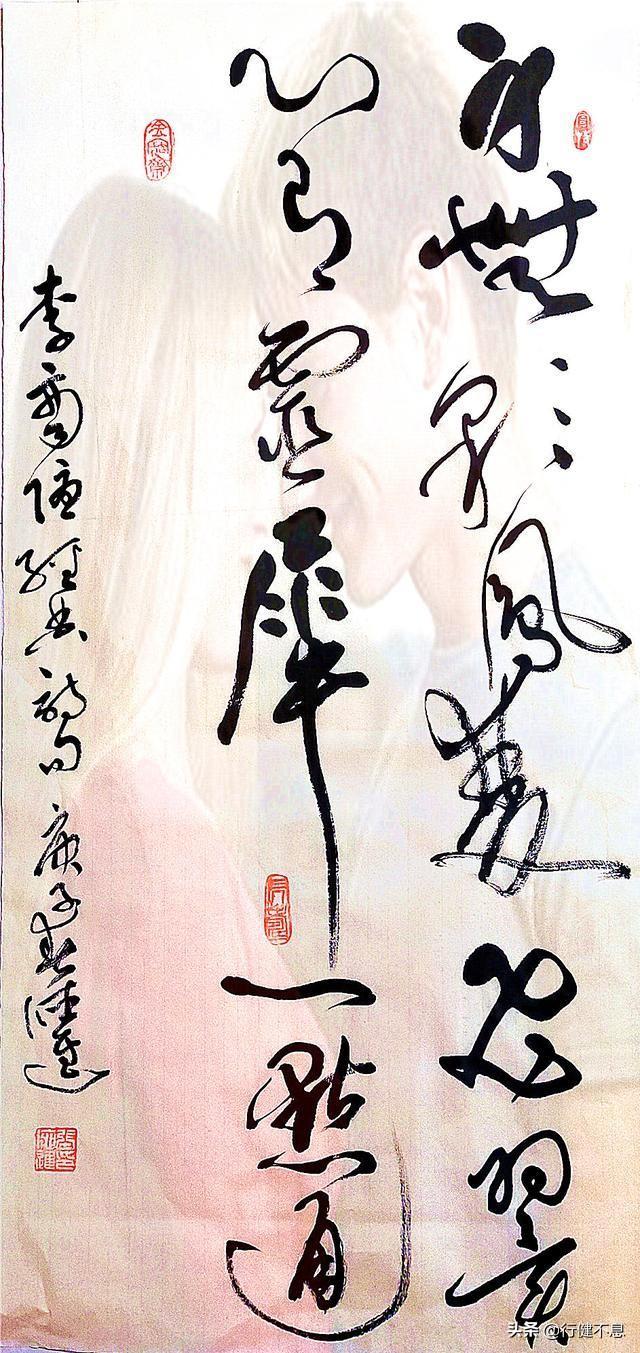 身無彩鳳雙飛翼
心有靈犀一點通
李商隱經典詩句 庚子春
头条 @行健不息